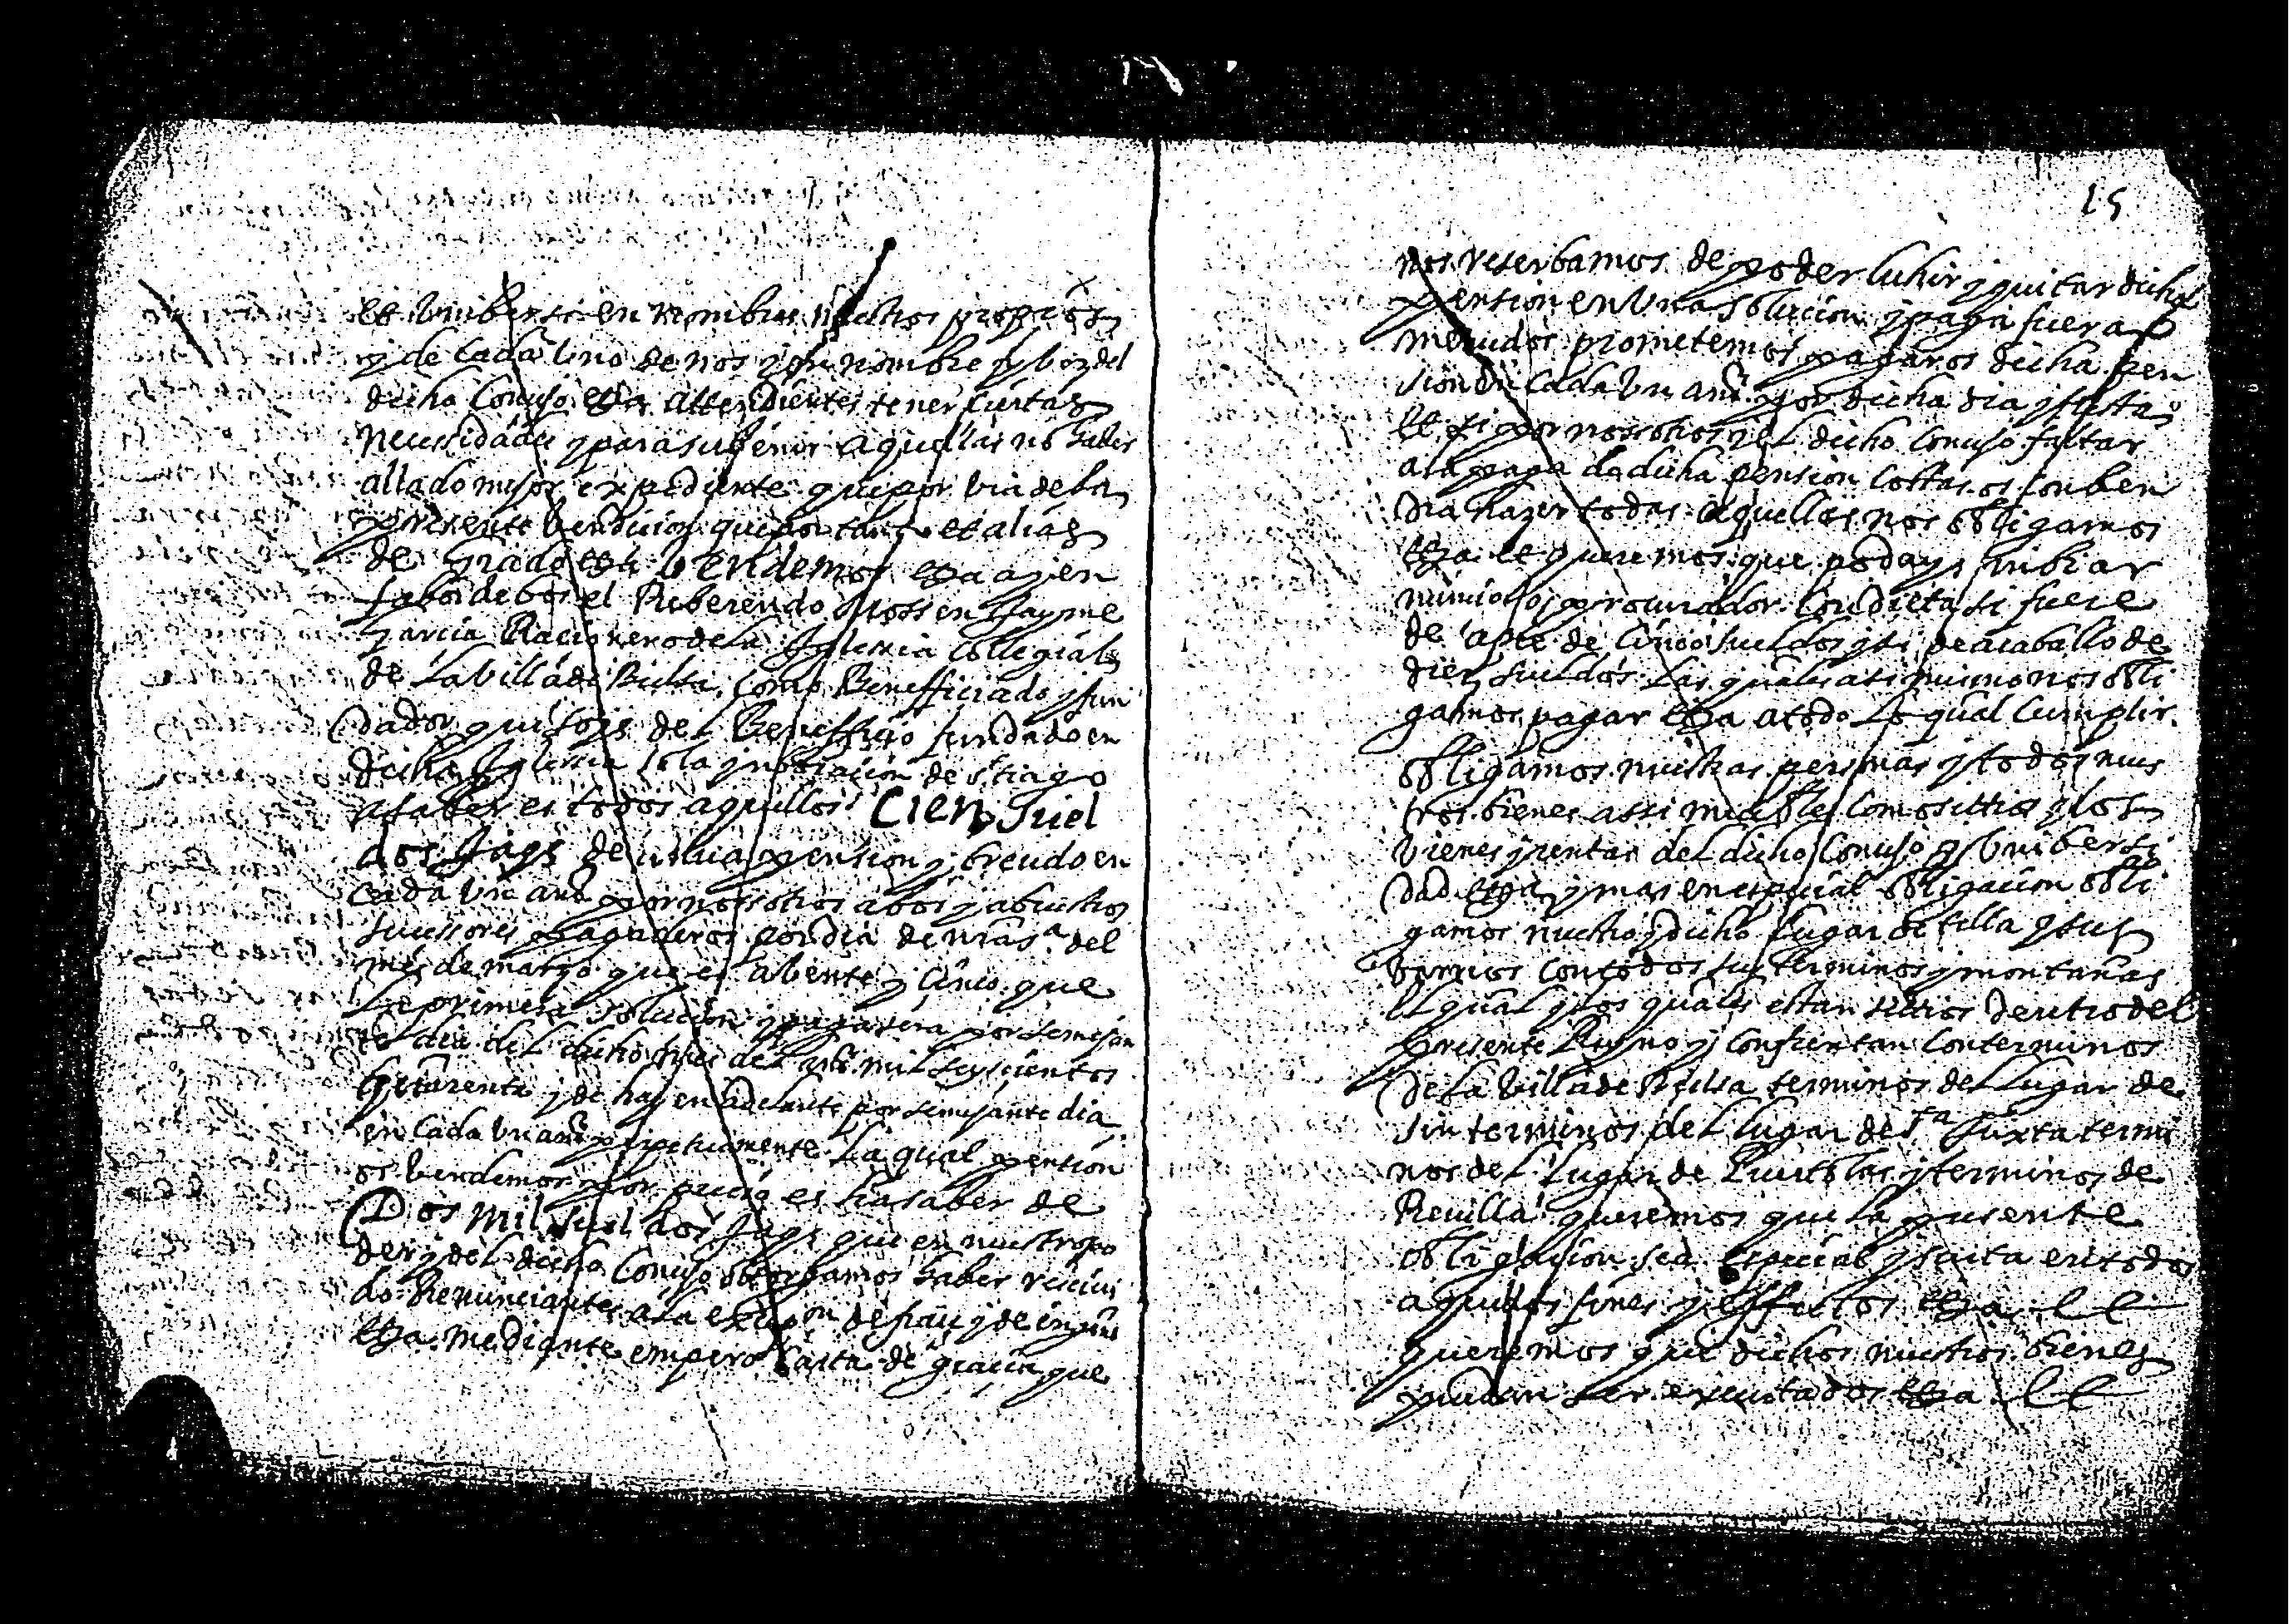 et vniberssi en nombres nuestros propios
y de cada vno de nos y en nombre y boz del
dicho Consejo etza attendientes tener ciertas
necesidades y para subenir aquellas no haber
allado mejor expediente que por via de la
presente bendicion que por tanto et alias
de Grado etza bendemos etza a y en
fabor de bos el Reberendo Mossen Jayme
garcia Racionero de la Iglesia Collegial
de la villa de Bielsa, como Benefficiado y fun
dador que soys del Beneffcio fundado en
dicha Iglesia so la ynbocacion de Stiago
a saber es todos aquellos Cien Suel
dos Jaqs de annua pension y treudo en
cada vn año por nosotros a bos y a buestros
sucessores pagaderos por dia de nra Sa del
mes de março que es a bente y cinco que
la primera solucion y paga sera por semejan
te dia del dicho mes del año mil seyscientos
quarenta y de hay en adelante por semejante dia
en cada vn año perpetuamente La qual pension
os bendemos por precio es ha saber de
Dos mil sueldos Jaqs que en nuestro po
der y del dicho Consejo otorgamos haber recivi
do Renunciantes a la excepon de frau y de engaño
etza mediante empero Carta de gracia que
15
nos reserbamos de poder luhir y quitar dicha
pension en vna solucion y paga fuera
menudos prometemos pagaros dicha pen
sion en cada vn año por dicho dia y fiesta
et si por nosotros y el dicho Consejo faltar
a la paga de dicha pension costas os conben
dra hazer todas aquellas nos obligamos
etza et queremos que podays imbiar
nuncio o procurador con dieta si fuere
de apie de cinco sueldos y si de acaballo de
diez sueldos las quales asi mismo nos obli
gamos pagar etza a todo lo qual cumplir
obligamos nuestras personas y todos nues
tros bienes assi muebles como sittios y los
bienes y rentas del dicho Consejo y vnibersi
dad etza y mas en especial obligacion obli
gamos nuestro dicho Lugar de tella y sus
barrios con todos sus terminos y montañas
el qual y los quales estan sitios dentro del
presente Reyno y confrentan con terminos
de la villa de Bielsa terminos del Lugar de
Sin terminos del Lugar de Sta Juxta termi
nos del Lugar de Puertolas y terminos de
Reuilla queremos que la presente
obligacion sea especial y surta en todos
aquellos fines y effectos etza et
queremos que dichos nuestros bienes
puedan ser executados etza et